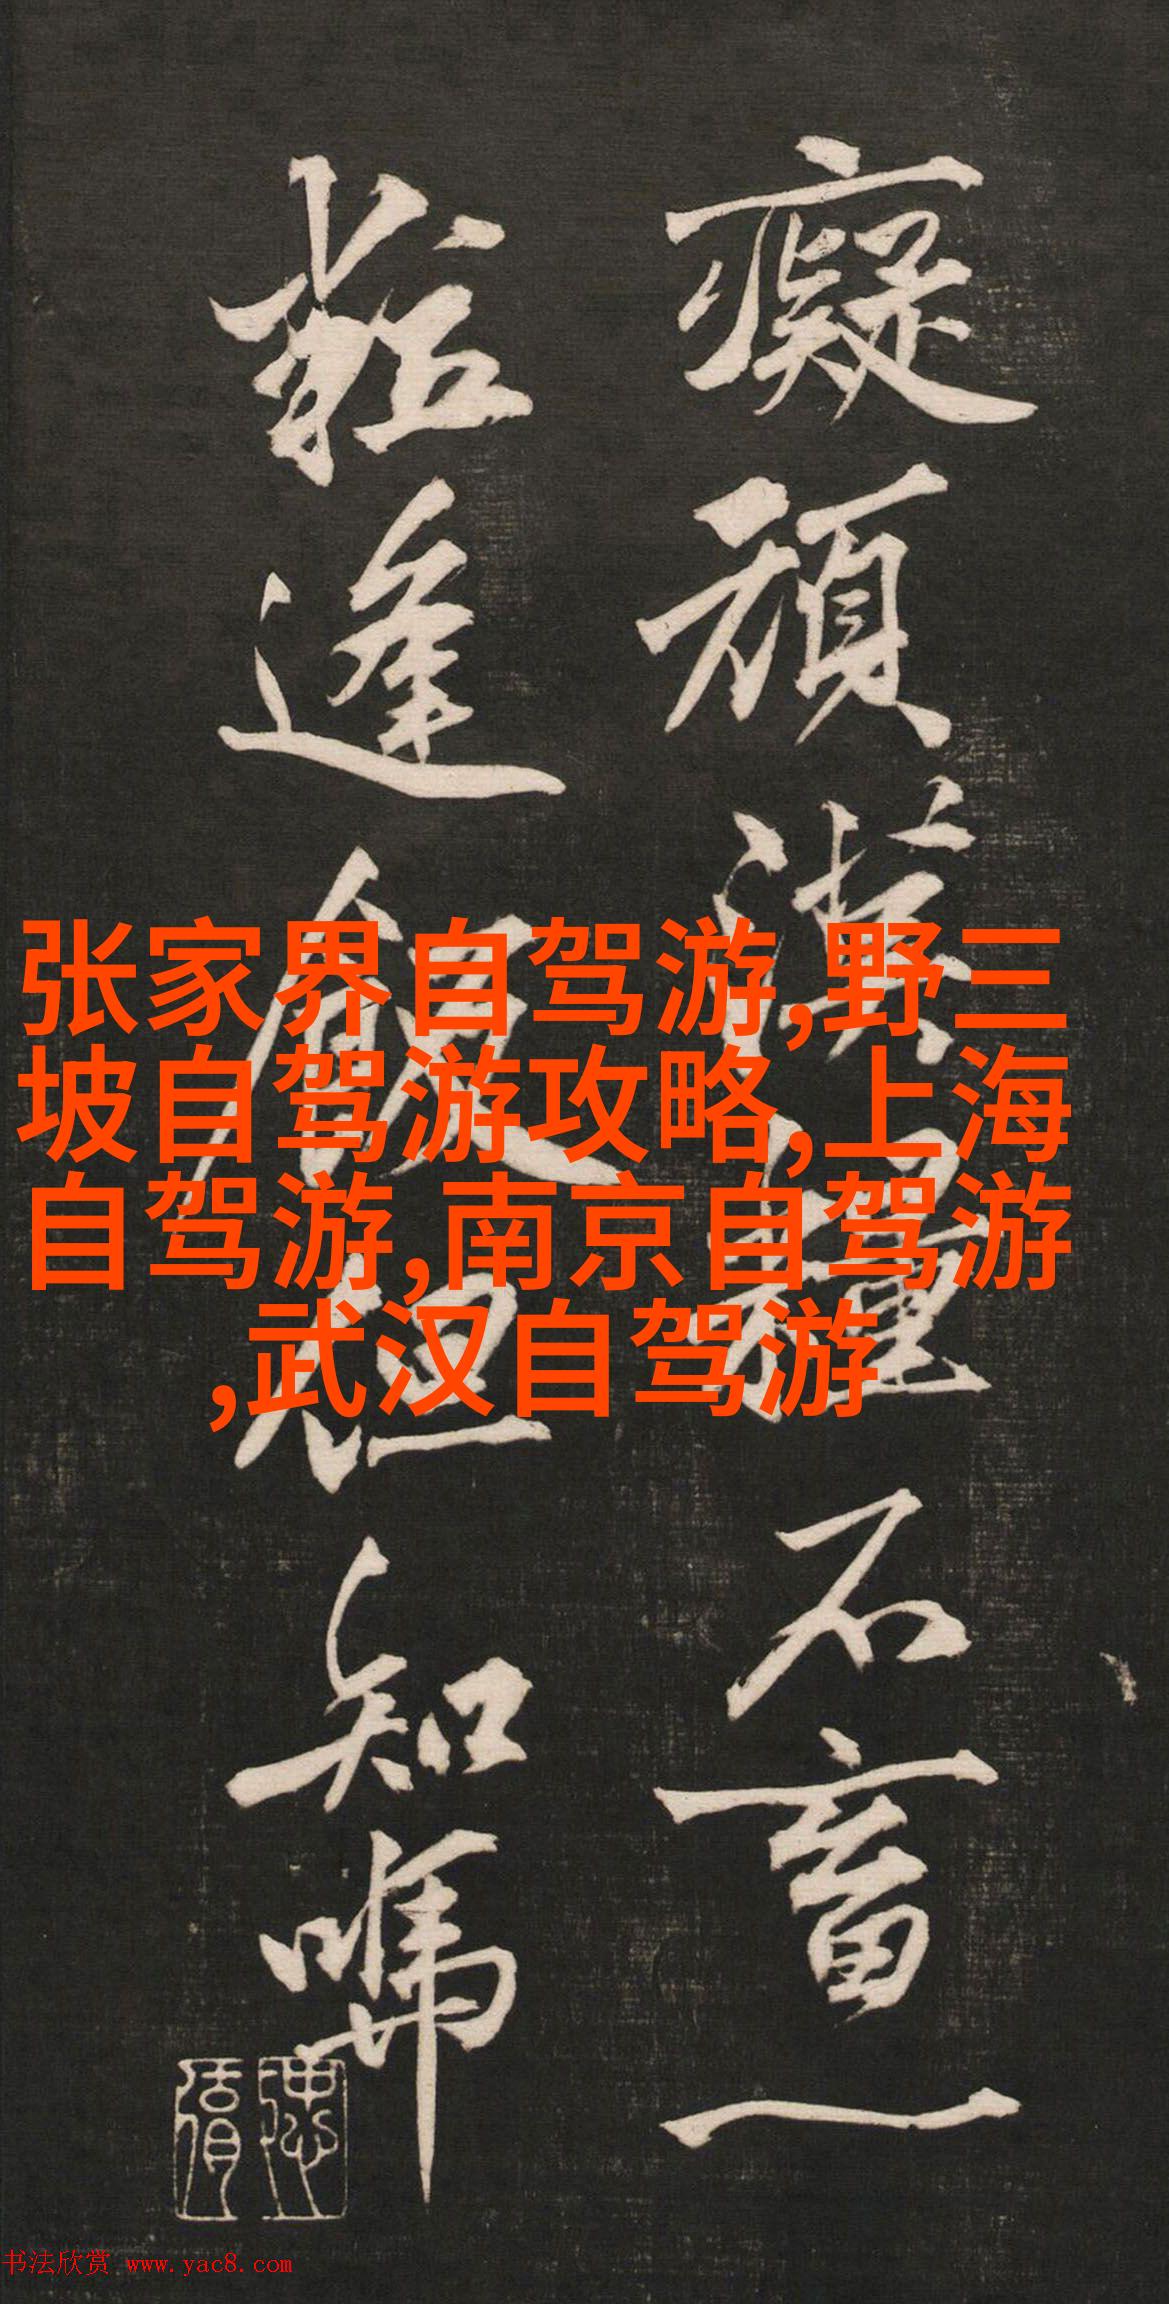 癡頑漢糧不畜一
粒逢飯但知嚼
张家界自驾游,野三
坡自驾游攻略,上海
自驾游,南京自驾游
,武汉自驾游
书法欣赏 www.yac8.com